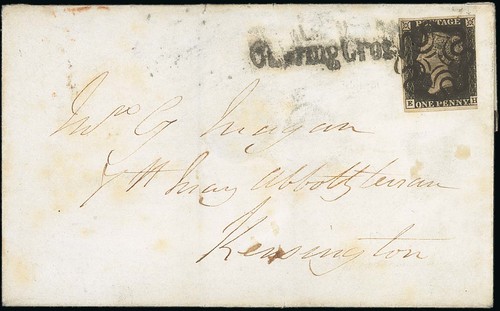 Charing Cross
POSTAGE
E H
ONE PENNY
Mrs G Magan
St Mary Abbotts Terrace
Kensington